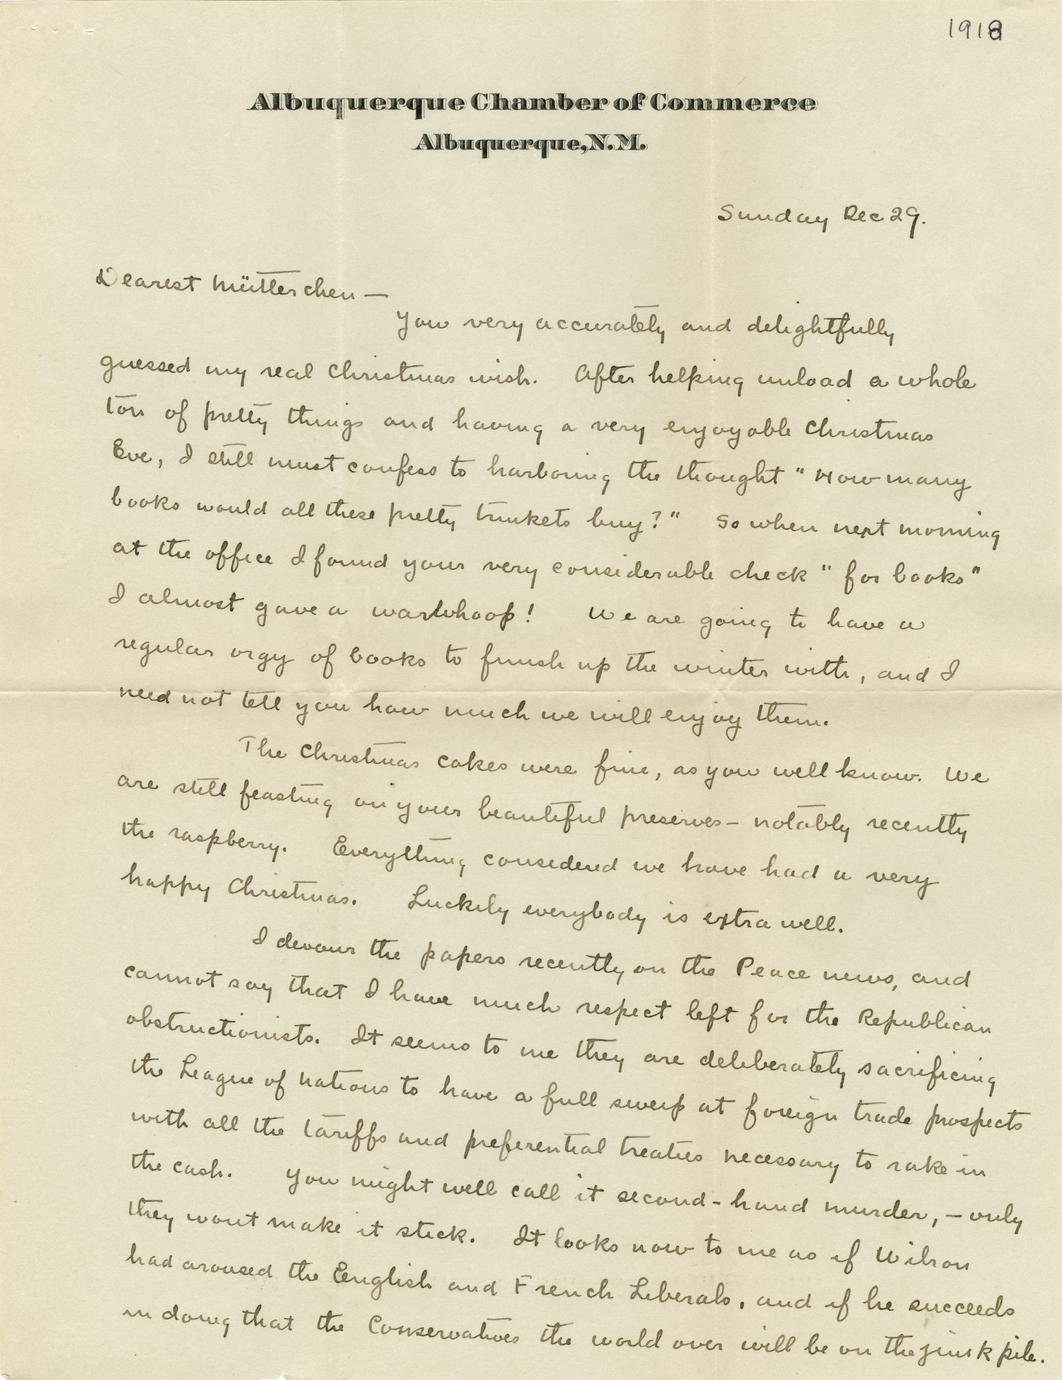 1918
Albuquerque Chamber of Commerce
Albuquerque, N.M.
Sunday Dec 29.
Dearest Mütterchen —
You very accurately and delightfully
guessed my real Christmas wish. After helping unload a whole
ton of pretty things and having a very enjoyable Christmas
Eve, I still must confess to harboring the thought "How many
books would all these pretty trinkets buy?" So when next morning
at the office I found your very considerable check "for books"
I almost gave a warwhoop! We are going to have a
regular orgy of books to finish up the winter with, and I
need not tell you how much we will enjoy them.
The Christmas cakes were fine, as you well know. We
are still feasting on your beautiful preserves — notably recently
the raspberry. Everything considered we have had a very
happy Christmas. Luckily everybody is extra well.
I devour the papers recently on the Peace news, and
cannot say that I have much respect left for the Republican
obstructionists. It seems to me they are deliberately sacrificing
the League of Nations to have a full sweep at foreign trade prospects
with all the tariffs and preferential treaties necessary to rake in
the cash. You might well call it second-hand murder, — only
they wont make it stick. It looks now to me as if Wilson
had aroused the English and French Liberals, and if he succeeds
in doing that the Conservatives the world over will be on the junk pile.